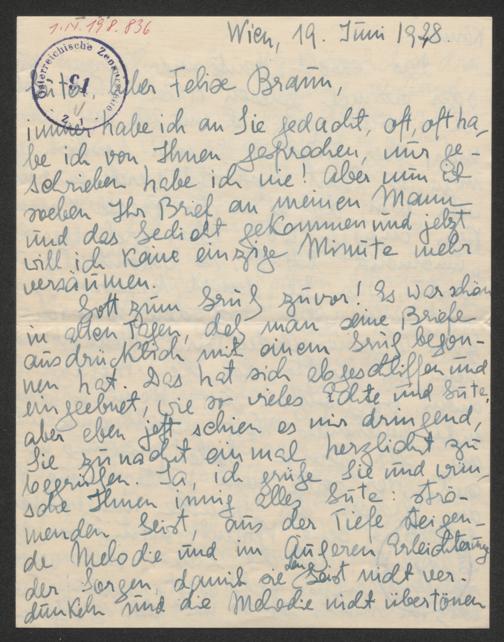 1. N. 198.836
Wien, 19. Juni 1948.
Österreichische Zensurstelle
Guter, lieber Felix Braun,
immer habe ich an Sie gedacht, oft, oft ha,
be ich von Ihnen gesprochen, nur ge-
schrieben habe ich nie! Aber nun ist
soeben Ihr Brief an meinen Mann
und das Gedicht gekommen und jetzt
will ich keine einzige Minute mehr
versäumen.
Gott zum Gruß zuvor! Es war schön
in alten Tagen, daß man seine Briefe
ausdrücklich mit einem Gruß begon-
nen hat. Das hat sich abgeschliffen und
eingeebnet, wie so vieles Echte und Gute,
aber eben jetzt schien es mir dringend,
Sie zunächst einmal herzlichst zu
begrüßen. Ja, ich grüße Sie und wün,
sche Ihnen innig alles Gute: strö-
menden Geist, aus der Tiefe steigen-
de Melodie und im Äußeren Erleichterung
der Sorgen, damit sie den Geist nicht ver-
dunkeln und die Melodie nicht übertönen